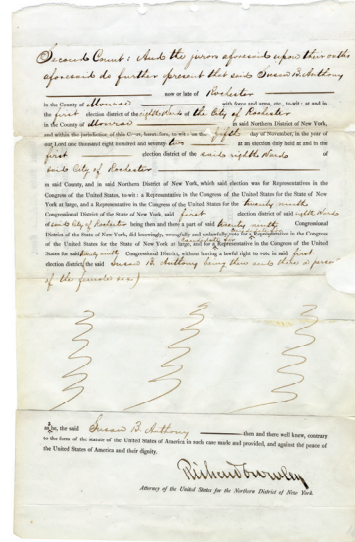 Second Count: And the jurors aforesaid upon their oaths
aforesaid do further present that said Susan B. Anthony
now or late of Rochester
in the County of Monroe with force and arms, etc., to-wit: at and in
the first election district of the eighth Ward of the City of Rochester
in the County of Monroe in said Northern District of New York,
and within the jurisdiction of this Court, heretofore, to-wit: on the fifth day of November, in the year
of our Lord one thousand eight hundred and seventy-two at an election duly held at and in the
first election district of the said eighth Ward of
said City of Rochester
in said County, and in said Northern District of New York, which said election was for Representatives in the
Congress of the United States, to-wit: a Representative in the Congress of the United States for the State of New
York at large, and a Representative in the Congress of the United States for the twenty ninth
Congressional District of the State of New York, said first election district of said eighth Ward
of said City of Rochester being then and there a part of said twenty ninth Congressional
District of the State of New York, did knowingly, wrongfully and unlawfully vote for a Representative in the Congress
candidate for
of the United States for the State of New York at large, and for a Representative in the Congress of the United
States for said twenty ninth Congressional District, without having a lawful right to vote in said first
election district, the said Susan B. Anthony being then and there a person
of the female sex)
as she, the said Susan B. Anthony then and there well knew, contrary
to the form of the statute of the United States of America in such case made and provided, and against the peace of
the United States of America and their dignity.
Richard Crowley
Attorney of the United States for the Northern District of New York.